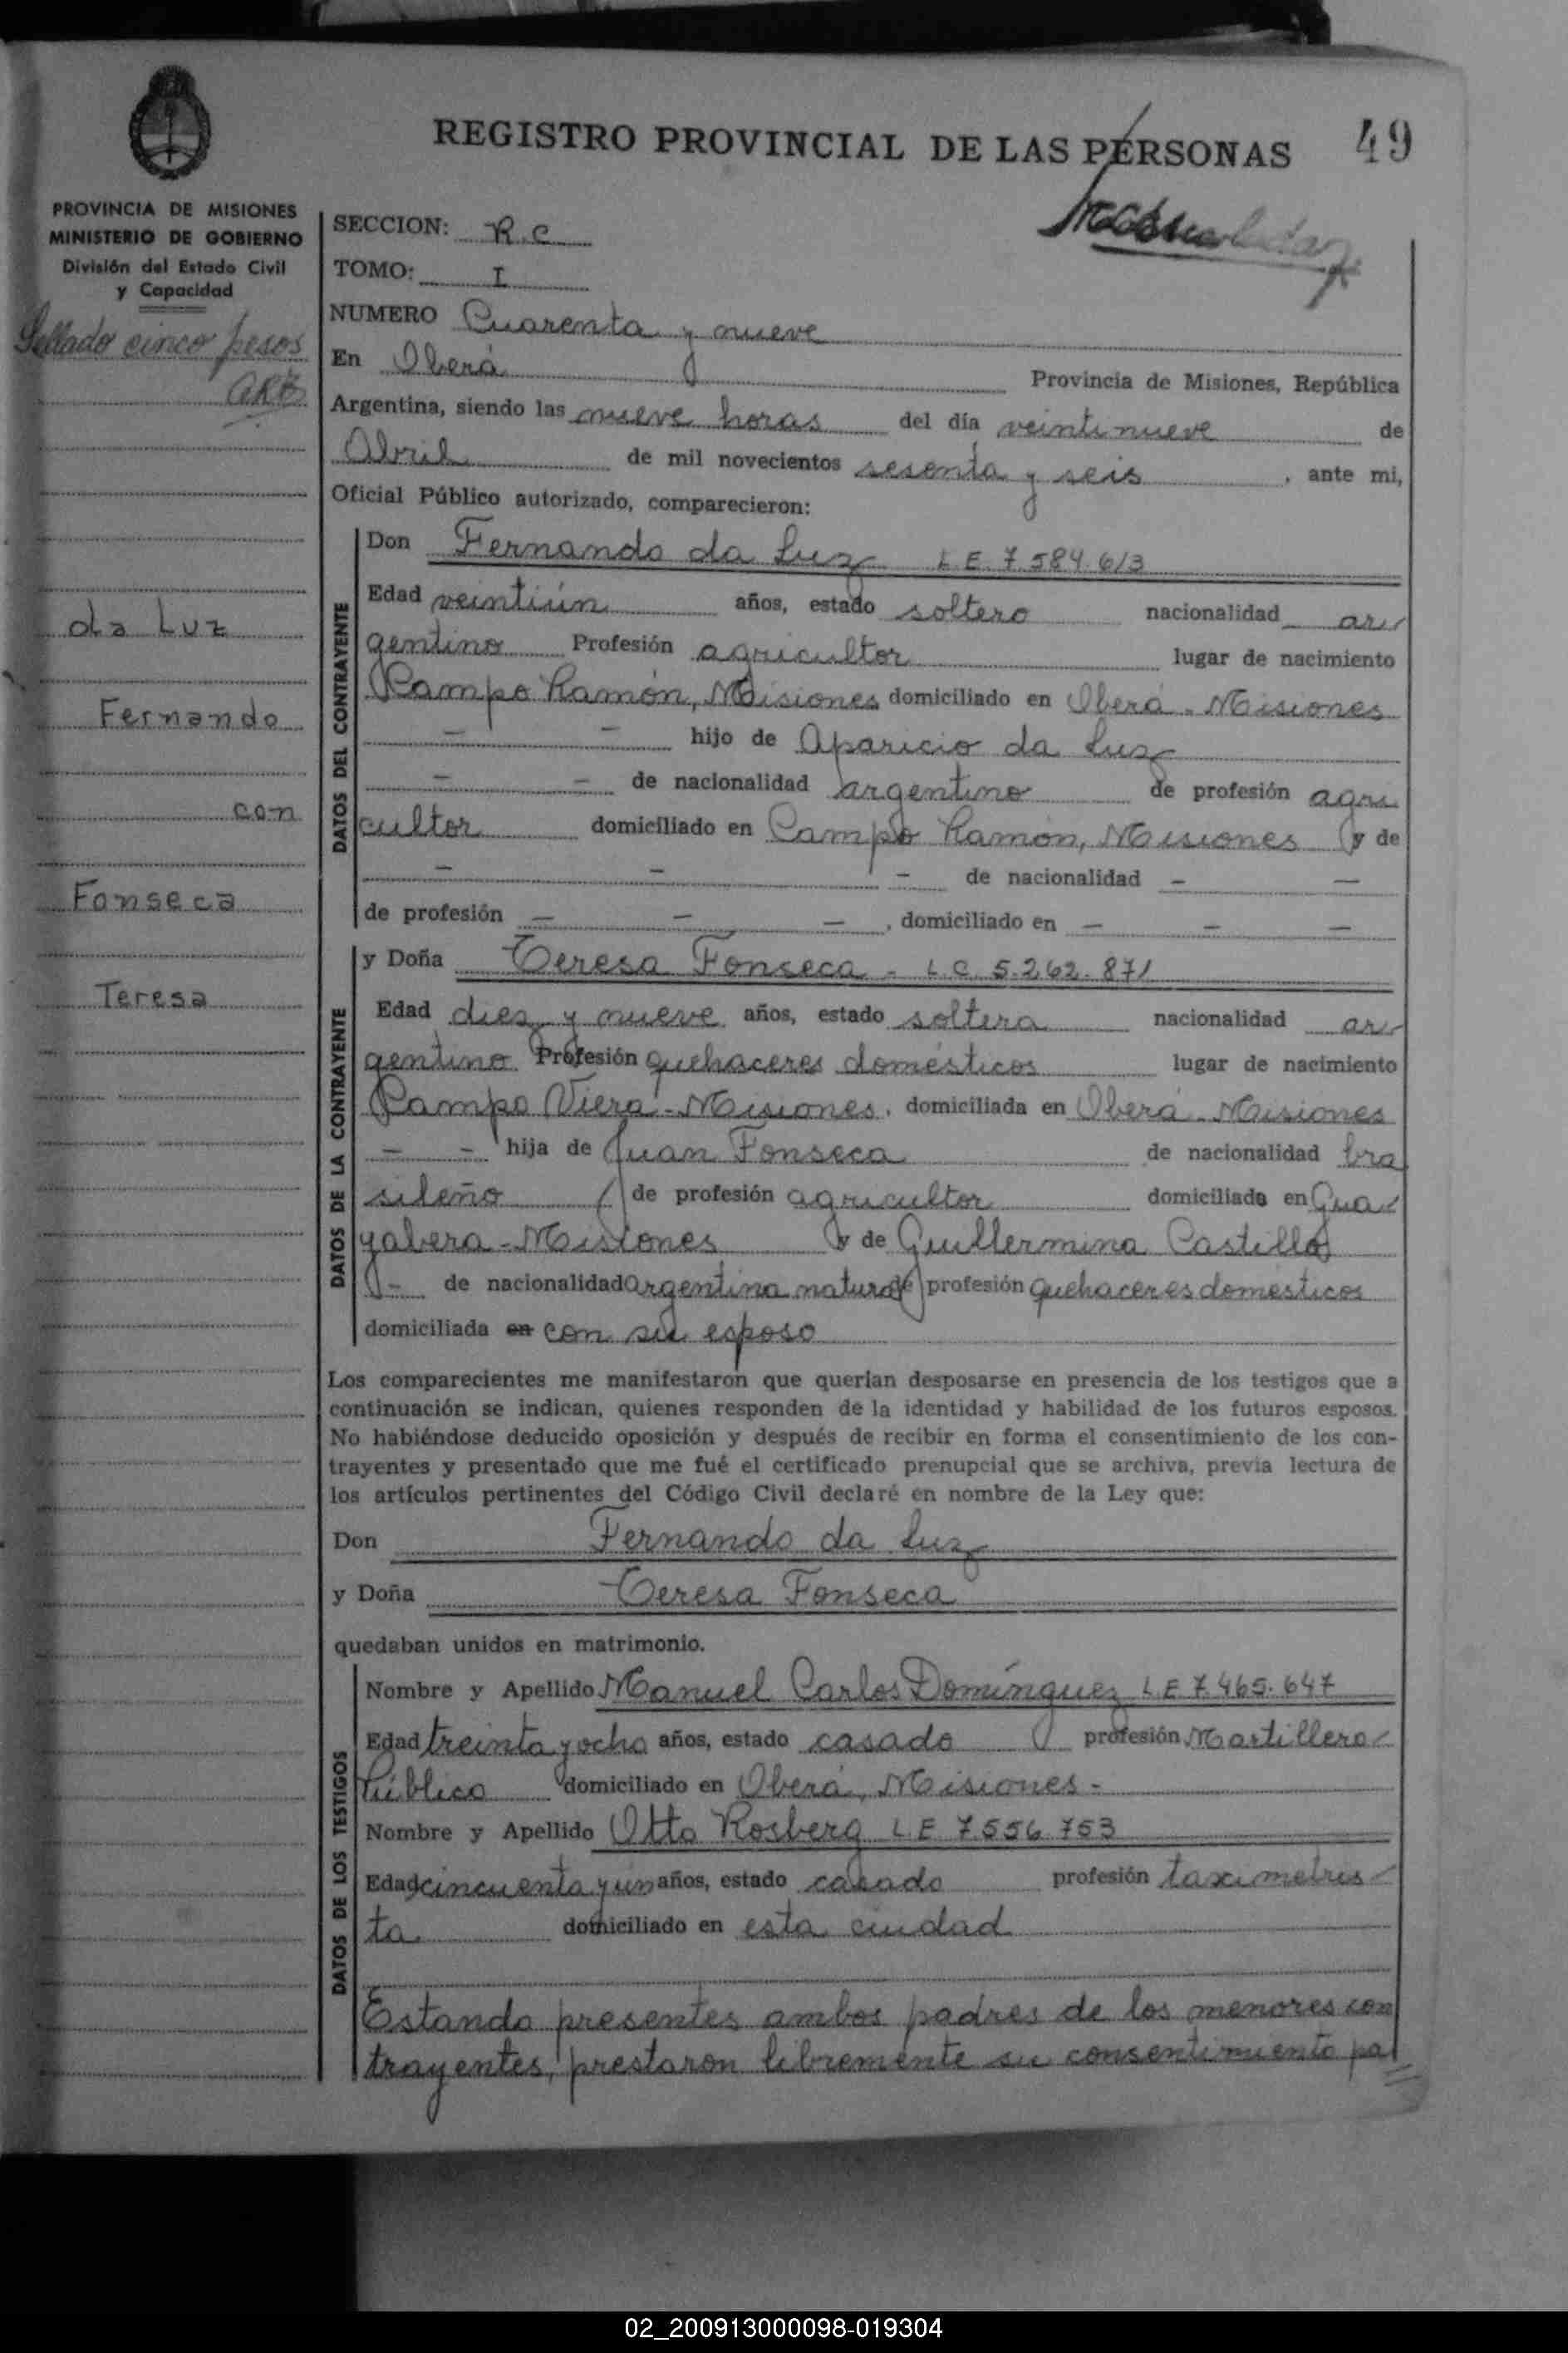 REGISTRO PROVINCIAL DE LAS PERSONAS 49
PROVINCIA DE MISIONES
MINISTERIO DE GOBIERNO
División del Estado Civil
y Capacidad
Sellado cinco pesos
da Luz
Fernando
con
Fonseca
Teresa
SECCION: R.C
TOMO: I
NUMERO Cuarenta y nueve
En Oberá Provincia de Misiones, República
Argentina, siendo las nueve horas del día veintinueve de
Abril de mil novecientos sesenta y seis, ante mi,
Oficial Público autorizado, comparecieron:
DATOS DEL CONTRAYENTE
Don Fernando da Luz L E 7.584.613
Edad veintiún años, estado soltero nacionalidad ar
gentino Profesión agricultor lugar de nacimiento
Campo Ramón, Misiones domiciliado en Oberá - Misiones
- - hijo de Aparicio da Luz
- - de nacionalidad argentino de profesión agri
cultor domiciliado en Campo Ramón, Misiones y de
- - - de nacionalidad - -
de profesión - - -, domiciliado en - - -
DATOS DE LA CONTRAYENTE
y Doña Teresa Fonseca - L C 5.262.871
Edad diez y nueve años, estado soltera nacionalidad ar
gentino Profesión quehaceres domésticos lugar de nacimiento
Campo Viera - Misiones, domiciliada en Oberá - Misiones
- - hija de Juan Fonseca de nacionalidad bra
sileño de profesión agricultor domiciliado en Gua
yabera - Misiones y de Guillermina Castillo
- de nacionalidad argentina natura de profesión quehaceres domésticos
domiciliada en con su esposo
Los comparecientes me manifestaron que querían desposarse en presencia de los testigos que a
continuación se indican, quienes responden de la identidad y habilidad de los futuros esposos.
No habiéndose deducido oposición y después de recibir en forma el consentimiento de los con-
trayentes y presentado que me fué el certificado prenupcial que se archiva, previa lectura de
los artículos pertinentes del Código Civil declaré en nombre de la Ley que:
Don Fernando da Luz
y Doña Teresa Fonseca
quedaban unidos en matrimonio.
DATOS DE LOS TESTIGOS
Nombre y Apellido Manuel Carlos Domínguez L E 7.465.647
Edad treinta y ocho años, estado casado profesión Martillero
Público domiciliado en Oberá, Misiones -
Nombre y Apellido Otto Rosberg L E 7.556.753
Edad cincuenta y un años, estado casado profesión taximetris
ta domiciliado en esta ciudad
Estando presentes ambos padres de los menores con
trayentes, prestaron libremente su consentimiento pa
02_200913000098-019304